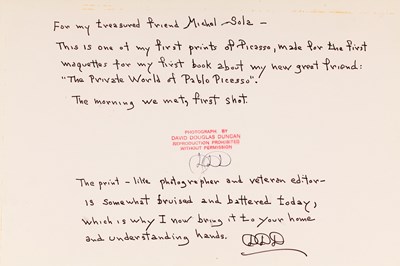 For my treasured friend Michel-Sola –
This is one of my first prints of Picasso, made for the first
maquettes for my first book about my new great friend:
"The Private World of Pablo Picasso".
The morning we met, first shot.
PHOTOGRAPH BY
DAVID DOUGLAS DUNCAN
REPRODUCTION PROHIBITED
WITHOUT PERMISSION
DDD
The print – like photographer and veteran editor –
is somewhat bruised and battered today,
which is why I now bring it to your home
and understanding hands. DDD